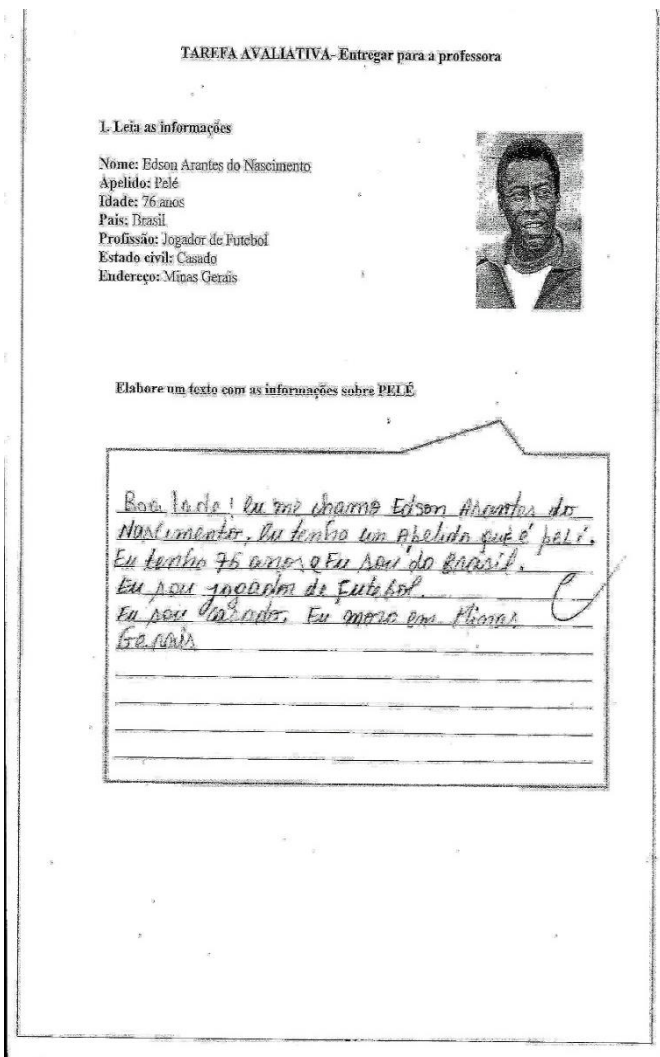 TAREFA AVALIATIVA- Entregar para a professora
1. Leia as informações
Nome: Edson Arantes do Nascimento
Apelido: Pelé
Idade: 76 anos
Pais: Brasil
Profissão: Jogador de Futebol
Estado civil: Casado
Endereço: Minas Gerais
Elabore um texto com as informações sobre PELÉ
Boa tade! Eu me chamo Edson Arantes do
Nascimento, Eu tenho un Apelido que é peli.
Eu tenho 76 anos e Eu sou do Brasil.
Eu sou jogador de Futebol.
Eu sou casado. Eu moro em Minas
Gerais